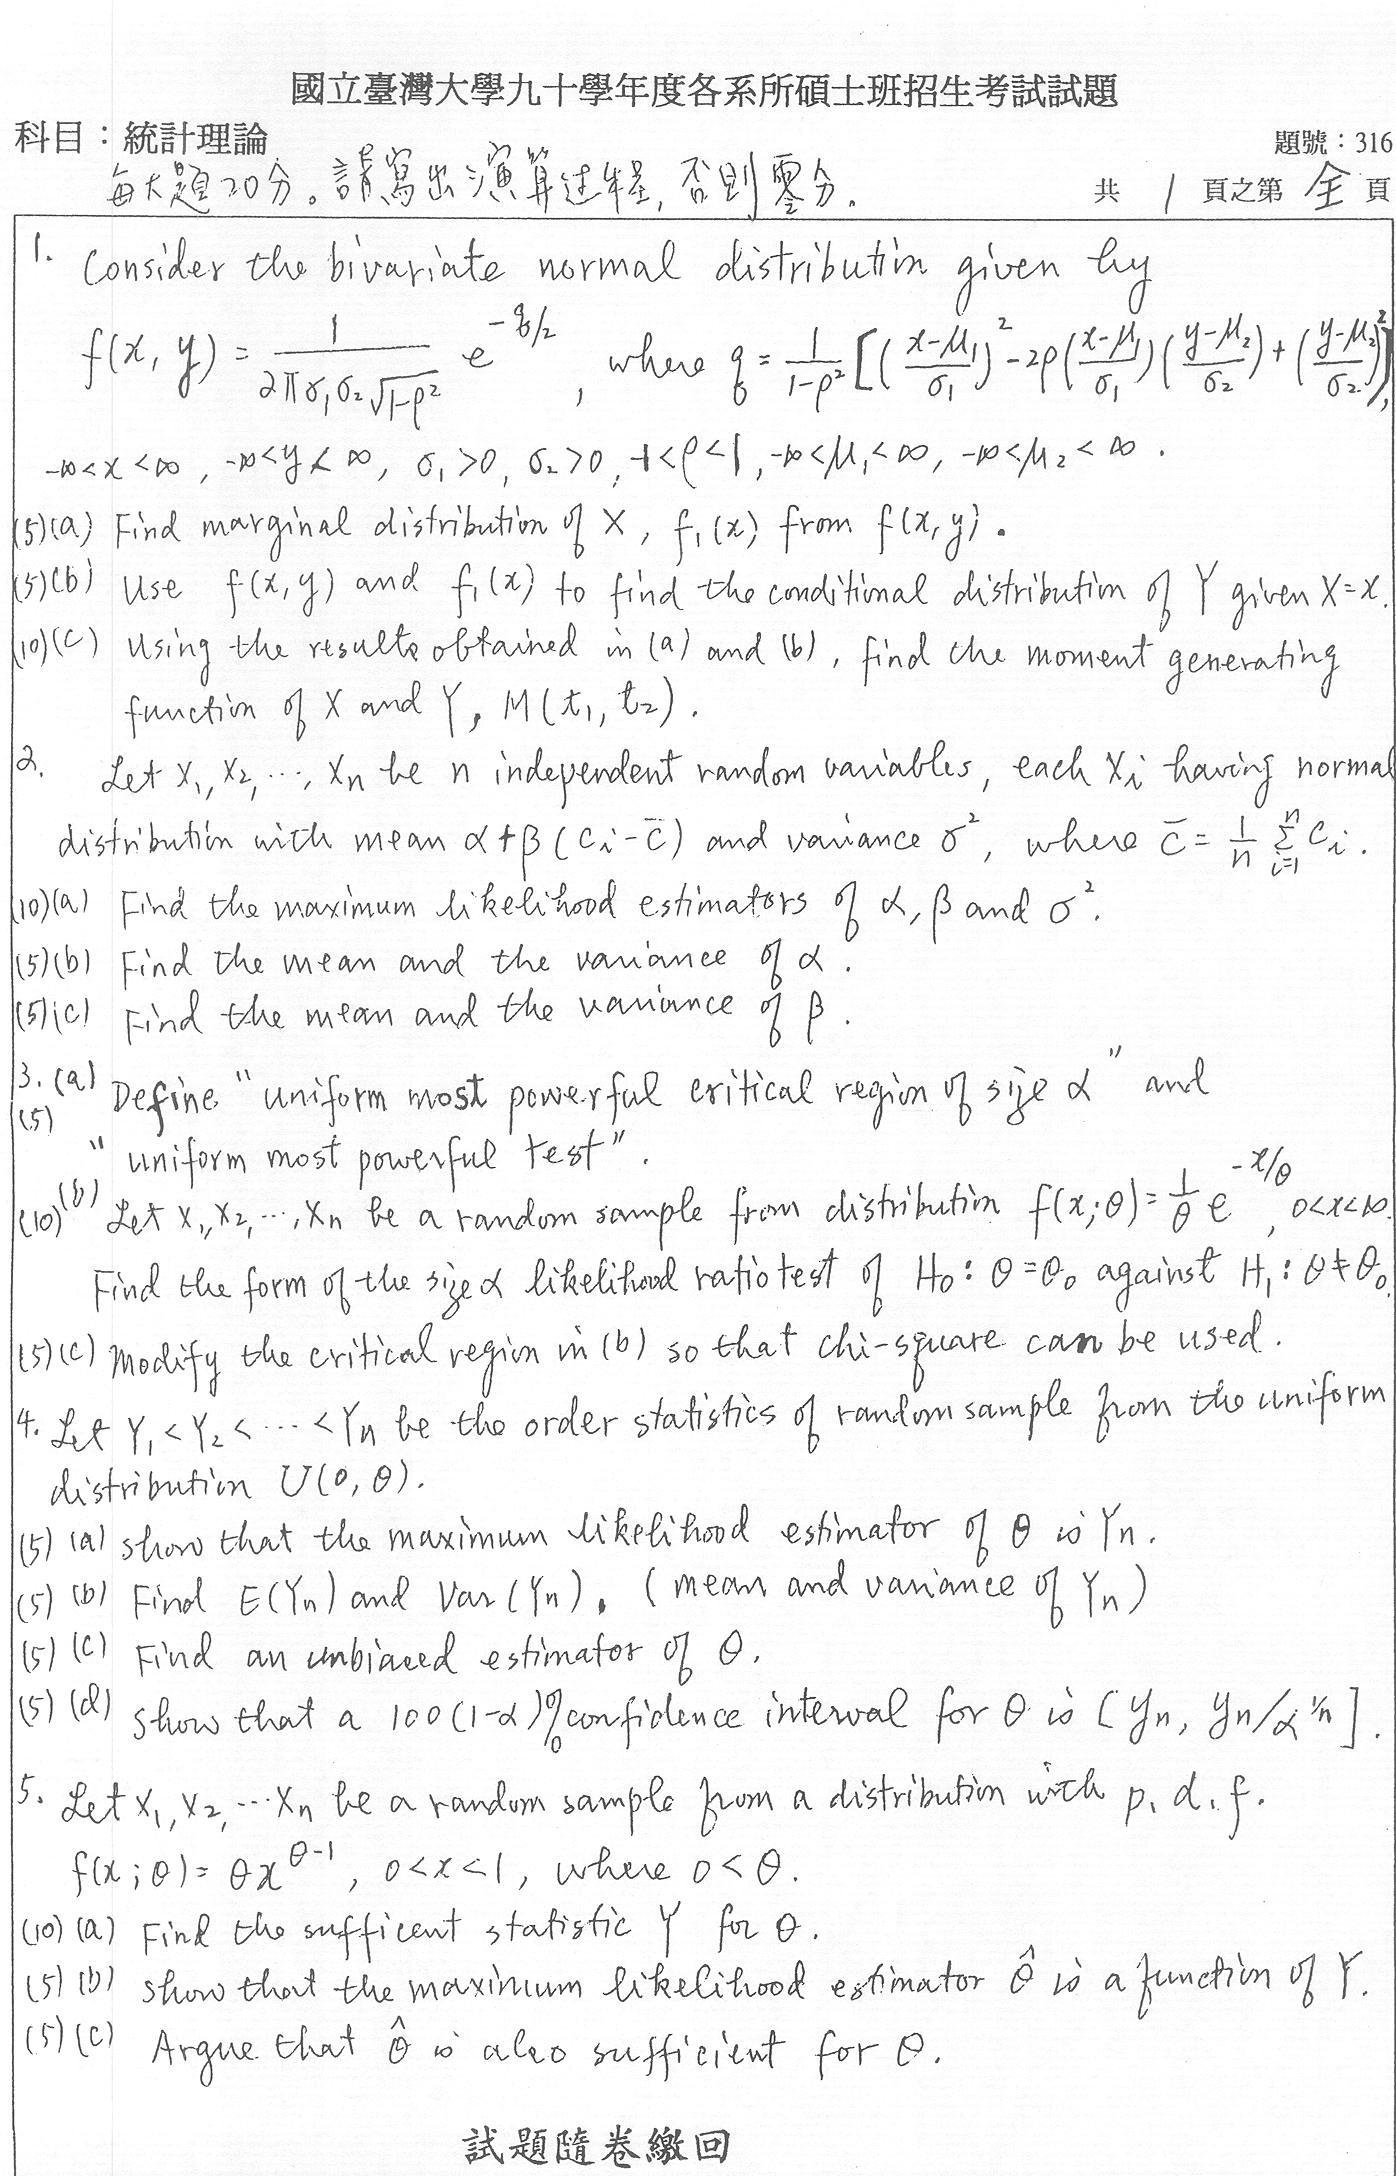 國立臺灣大學九十學年度各系所碩士班招生考試試題
科目：統計理論
題號：316
每大題20分。請寫出演算过程，否則零分。
共 1 頁之第 全 頁
1. Consider the bivariate normal distribution given by
f(x, y) = 1/(2πσ₁σ₂√(1-ρ²)) e^(-q/2), where q = 1/(1-ρ²) [((x-μ₁)/σ₁)² - 2ρ((x-μ₁)/σ₁)((y-μ₂)/σ₂) + ((y-μ₂)/σ₂)²],
-∞<x<∞, -∞<y<∞, σ₁>0, σ₂>0, -1<ρ<1, -∞<μ₁<∞, -∞<μ₂<∞.
(5)(a) Find marginal distribution of X, f₁(x) from f(x,y).
(5)(b) Use f(x,y) and f₁(x) to find the conditional distribution of Y given X=x.
(10)(c) Using the results obtained in (a) and (b), find the moment generating
function of X and Y, M(t₁, t₂).
2. Let X₁, X₂, ⋯, Xn be n independent random variables, each Xi having normal
distribution with mean α+β(ci-c̄) and variance σ², where c̄ = 1/n Σ_{i=1}^{n} ci.
(10)(a) Find the maximum likelihood estimators of α, β and σ².
(5)(b) Find the mean and the variance of α.
(5)(c) Find the mean and the variance of β.
3. (a) Define "uniform most powerful critical region of size α" and
(5) "uniform most powerful test".
(10)(b) Let X₁, X₂, ⋯, Xn be a random sample from distribution f(x;θ) = 1/θ e^(-x/θ), 0<x<∞.
Find the form of the size α likelihood ratio test of H₀: θ=θ₀ against H₁: θ≠θ₀.
(5)(c) Modify the critical region in (b) so that chi-square can be used.
4. Let Y₁<Y₂<⋯<Yn be the order statistics of random sample from the uniform
distribution U(0, θ).
(5) (a) Show that the maximum likelihood estimator of θ is Yn.
(5) (b) Find E(Yn) and Var(Yn). (mean and variance of Yn)
(5) (c) Find an unbiased estimator of θ.
(5) (d) Show that a 100(1-α)% confidence interval for θ is [yn, yn/α^(1/n)].
5. Let X₁, X₂, ⋯Xn be a random sample from a distribution with p.d.f.
f(x;θ) = θx^(θ-1), 0<x<1, where 0<θ.
(10) (a) Find the sufficent statistic Y for θ.
(5) (b) Show that the maximum likelihood estimator θ̂ is a function of Y.
(5) (c) Argue that θ̂ is also sufficient for θ.
試題隨卷繳回